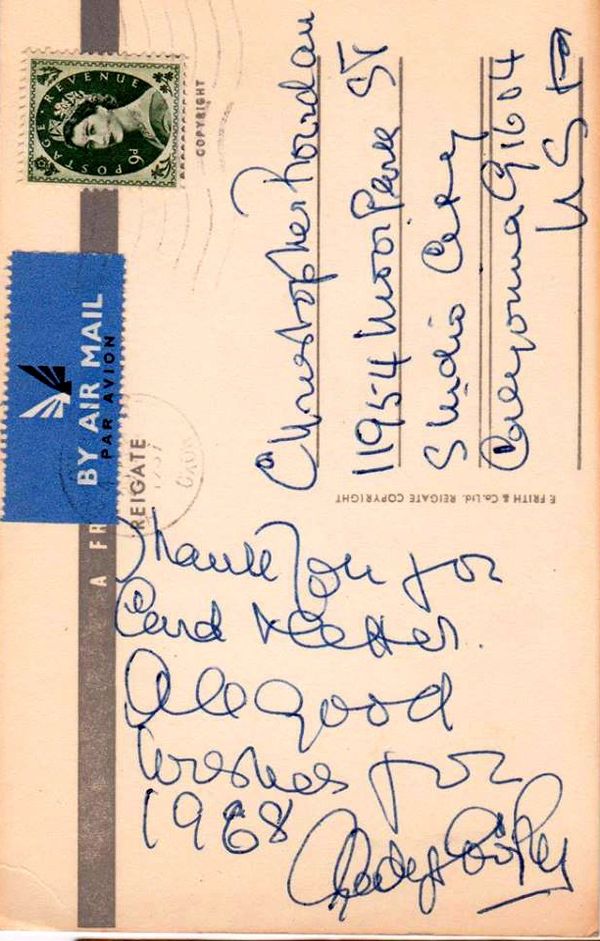 POSTAGE REVENUE
9D
BY AIR MAIL
PAR AVION
A FR
REIGATE
COPYRIGHT
OXON
Thank You for
Card & Letter.
All good
wishes for
1968
Gladys Cooper
F. FRITH & Co. Ltd. REIGATE COPYRIGHT
Christopher Riordan
11954 Moor Park ST
Studio City
California 91604
USA